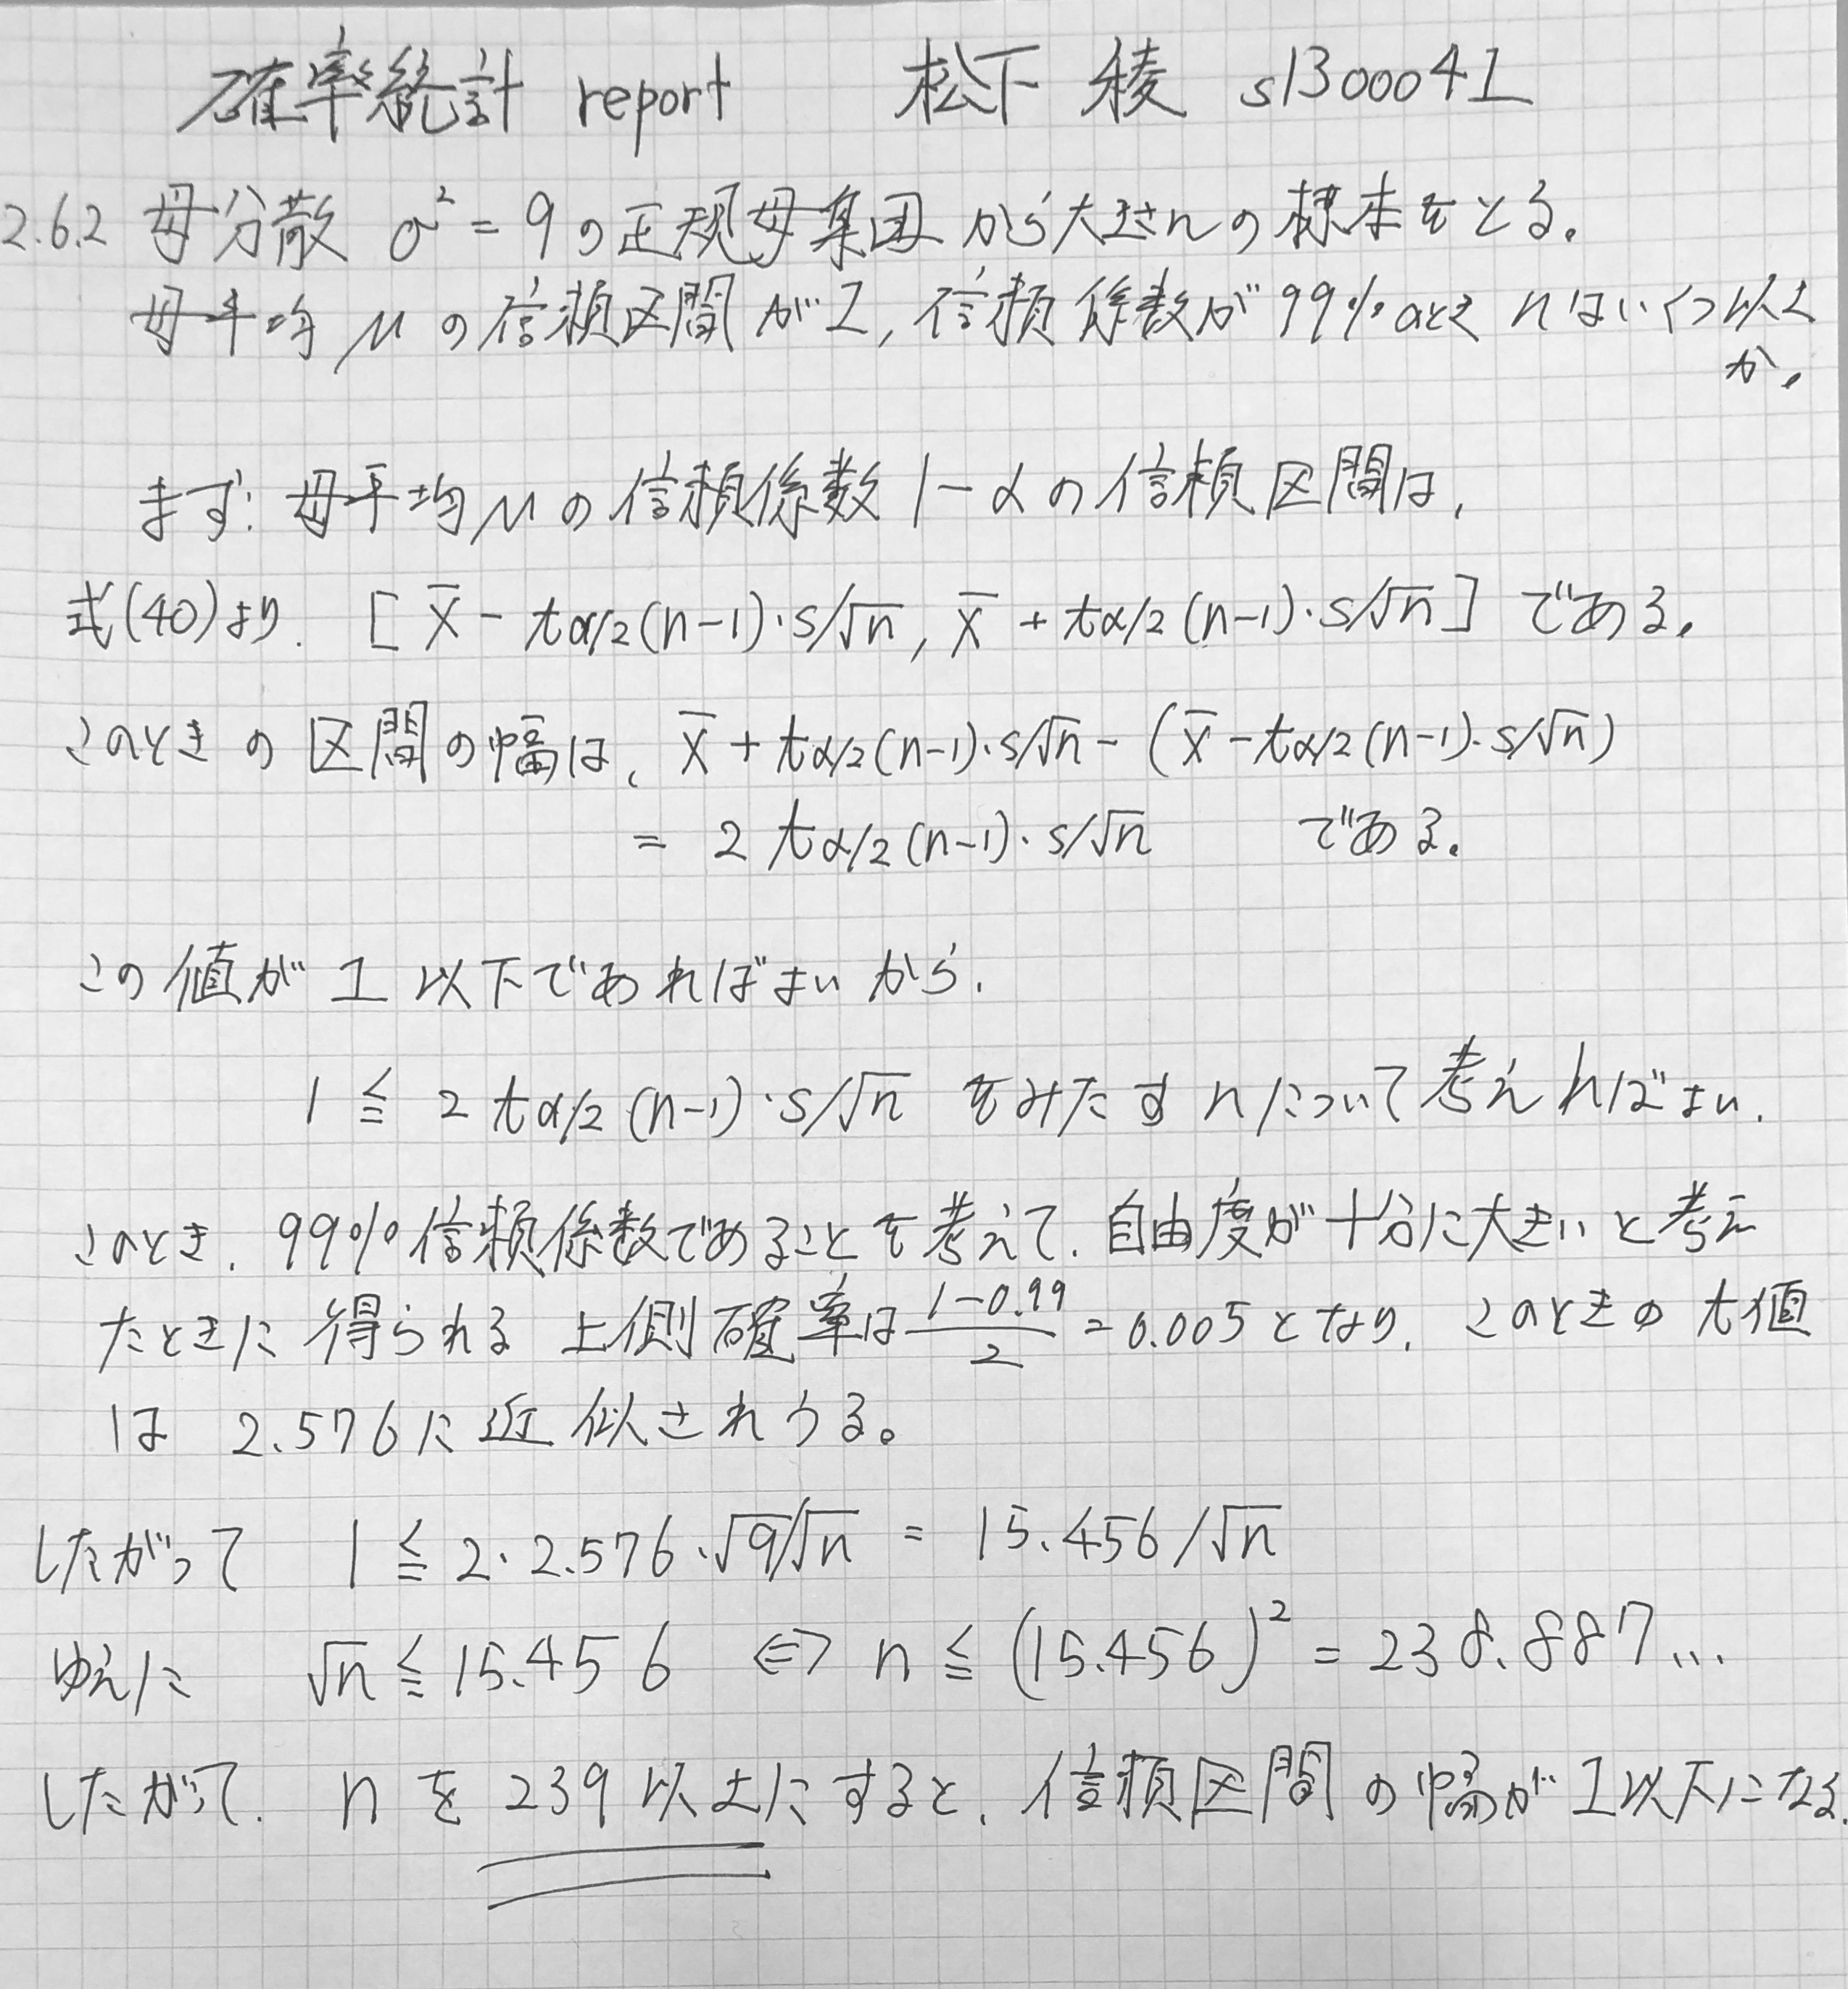 確率統計 report 松下 稜 s1300041
2.6.2 母分散 σ² = 9 の正規母集団 から大きさnの 標本をとる。
母平均 μ の信頼区間が1, 信頼係数が99%のとき nはいくつ以上
か。
まず. 母平均μの信頼係数 1-α の信頼区間は,
式(40)より. [x̄ - tα/2(n-1)·s/√n, x̄ + tα/2(n-1)·s/√n] である。
このときの区間の幅は、x̄ + tα/2(n-1)·s/√n - (x̄ - tα/2(n-1)·s/√n)
= 2 tα/2(n-1)·s/√n である。
この値が 1 以下であればよいから.
1 ≦ 2 tα/2(n-1)·s/√n をみたすnについて考えればよい.
このとき. 99%信頼係数であることを考えて. 自由度が十分に大きいと考え
たときに得られる 上側確率は (1-0.99)/2 = 0.005となり. このときの t値
は 2.576に近似されうる。
したがって 1 ≦ 2·2.576·√9/√n = 15.456/√n
ゆえに √n ≦ 15.456 ⇔ n ≦ (15.456)² = 238.887...
したがって. n を 239 以上にすると. 信頼区間の幅が1以下になる.